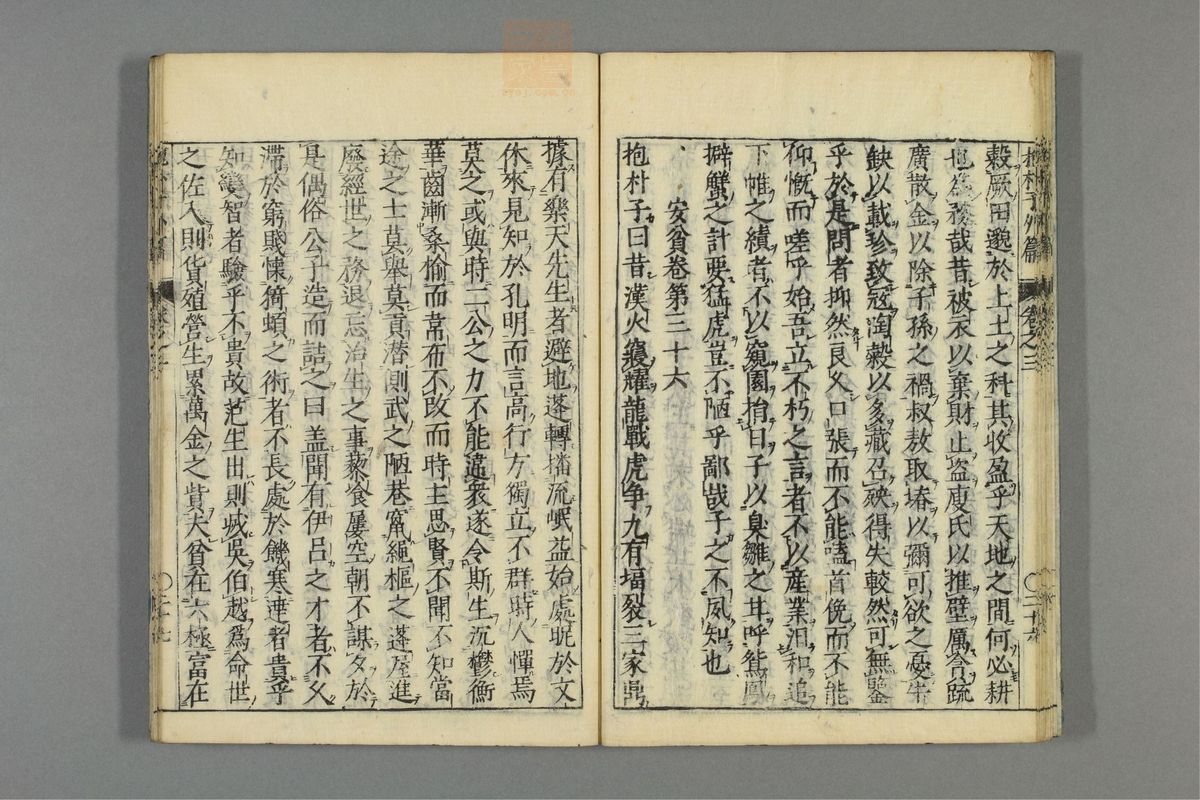 穀厥田邈於上土之科其收盈乎天地之間何必耕
也為務哉昔被衣以棄財止盗庾氏以推璧厲含疏
廣散金以除子孫之禍叔敖取塉以彌可欲之憂牛
缺以載珍致冦陶穀以多藏召殃得失較然可無鑒
乎於是問者抑然良久口張而不能嗑首俛而不能
仰慨而嗟乎始吾立不朽之言者不以産業汨和追
下帷之績者不以窺園捐日子以臭雛之甘呼鴛鳳
擗蟹之計要猛虎豈不陋乎鄙哉子之不夙知也
安貧卷第三十六
抱朴子曰昔漢火寢耀龍戰虎争九有堛裂三家鼎
據有樂天先生者避地蓬轉播流岷益始處昵於文
休來見知於孔明而言高行方獨立不群時人憚焉
莫之或與時二公之力不能違衆遂令斯生沉鬱衡
華齒漸桑榆而韋布不改而時主思賢不聞不知當
途之士莫舉莫貢潜則武之陋巷竄繩樞之蓬屋進
廢經世之務退忘治生之事藜飡屢空朝不謀夕於
是偶俗公子造而詰之曰盖聞有伊吕之才者不久
滯於窮賤懷猗頓之術者不長處於饑寒達者貴乎
知變智者驗乎不貴故范生出則滅吳伯越爲命世
之佐入則貨殖營生累萬金之貲夫貧在六極富在
抱朴子外篇
卷之三
〇二十六